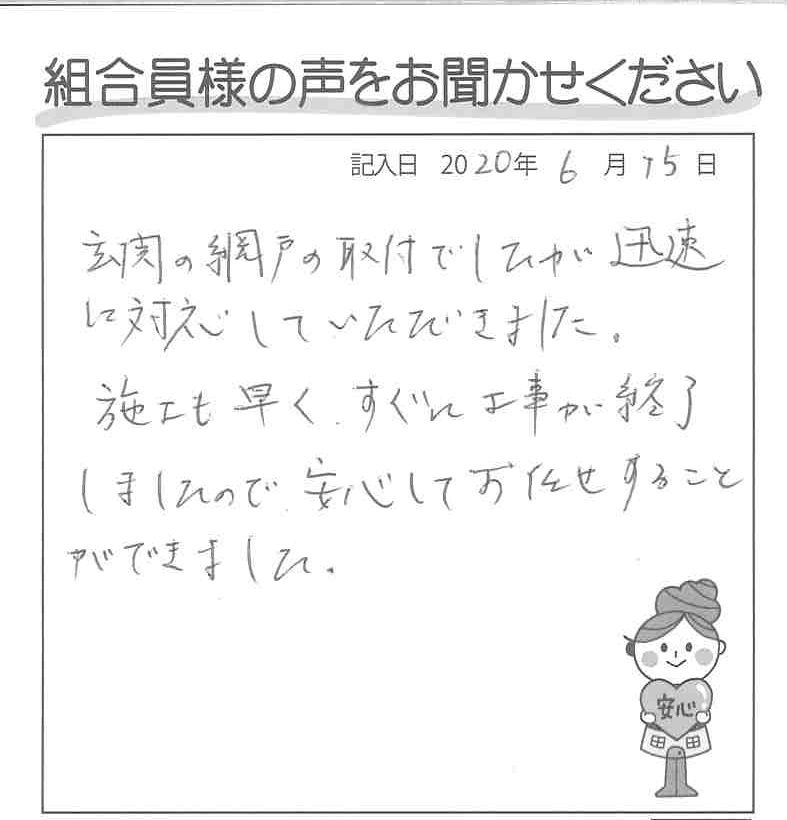 組合員様の声をお聞かせください
記入日 2020年 6月 15日
玄関の網戸の取付でしたが迅速
に対応していただきました。
施工も早く、すぐに工事が終了
しましたので、安心してお任せすること
ができました。
安心